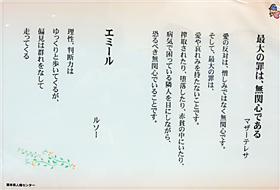 最大の罪は、無関心である
マザーテレサ
愛の反対は、憎しみではなく無関心です。
そして、最大の罪は、
愛や哀れみを持たないことです。
搾取されたり、堕落したり、赤貧の中にいたり、
病気で困っている隣人を目にしながら、
恐るべき無関心でいることです。
エミール
ルソー
理性、判断力は
ゆっくりと歩いてくるが、
偏見は群れをなして
走ってくる
熊本県人権センター